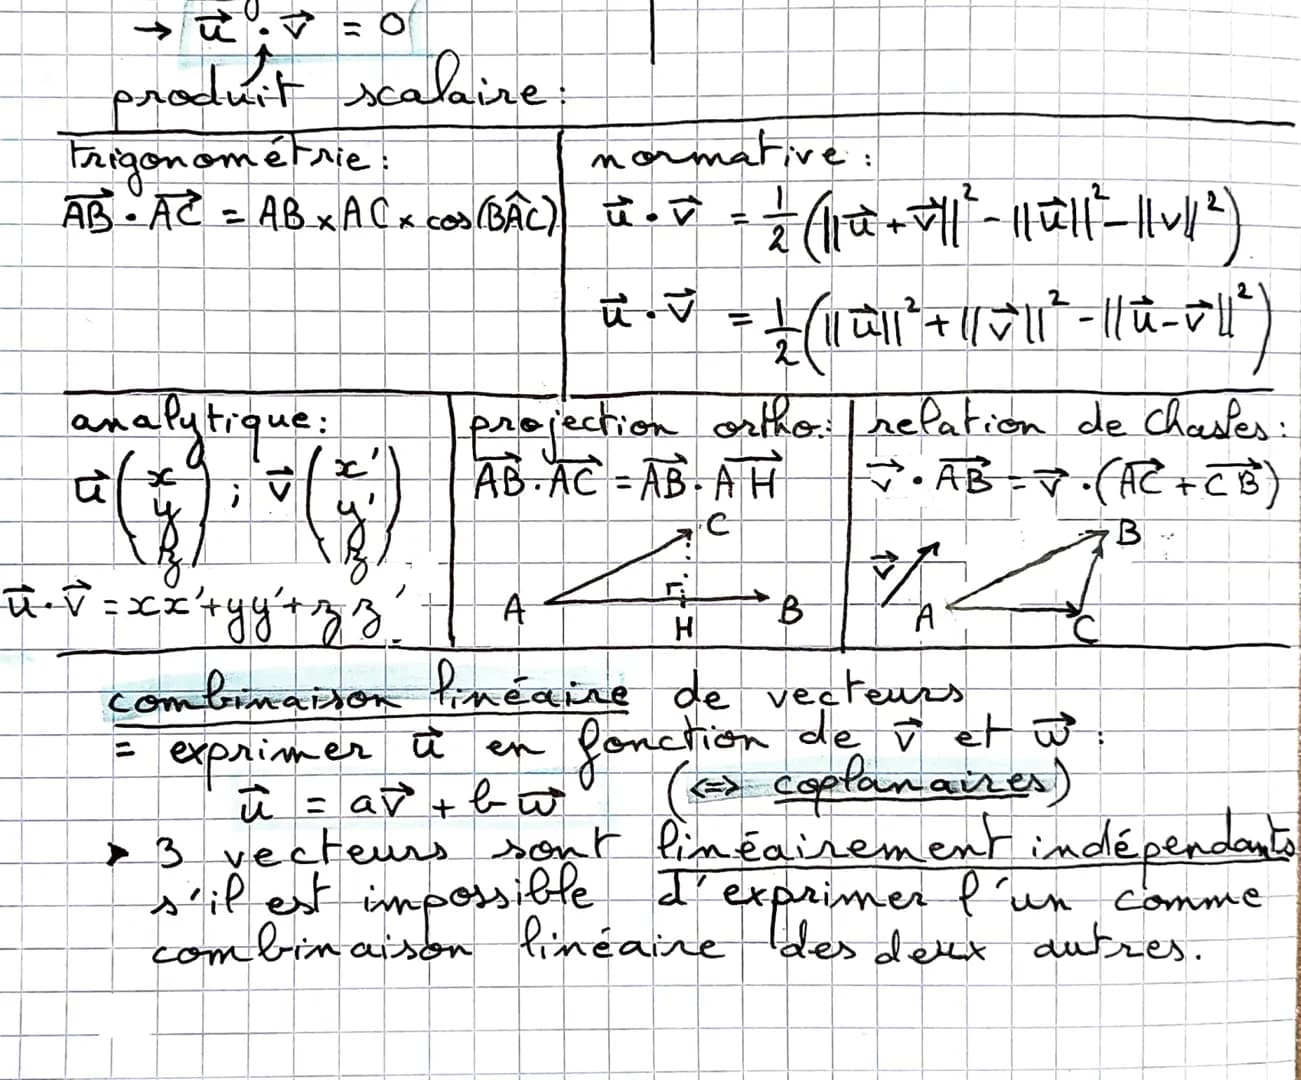 → u⃗ · v⃗ = 0
produit scalaire :
trigonométrie :
AB⃗ · AC⃗ = AB × AC × cos(BÂC)
normative :
u⃗ · v⃗ = 1/2 (||u⃗ + v⃗||² - ||u⃗||² - ||v||²)
u⃗ · v⃗ = 1/2 (||u⃗||² + ||v⃗||² - ||u⃗ - v⃗||²)
analytique :
u⃗ (x y z) ; v⃗ (x' y' z')
u⃗ · v⃗ = xx' + yy' + zz'
projection ortho. :
AB⃗ · AC⃗ = AB⃗ · AH⃗
C
A
B
H
relation de Chasles :
v⃗ · AB⃗ = v⃗ · (AC⃗ + CB⃗)
B
v⃗
A
C
combinaison linéaire de vecteurs
= exprimer u⃗ en fonction de v⃗ et w⃗ :
u⃗ = av⃗ + bw⃗ (⇔ coplanaires)
➤ 3 vecteurs sont linéairement indépendants
s'il est impossible d'exprimer l'un comme
combinaison linéaire des deux autres.